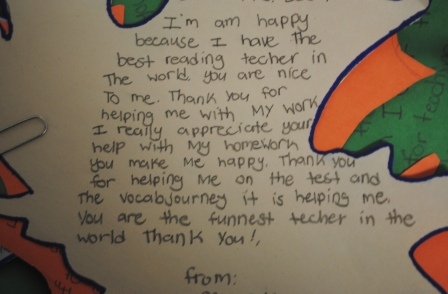 I'm am happy
because I have the
best reading techer in
The world. you are nice
To me. Thank you for
helping me with My work
I really appreciate your
help with My homework
you make Me happy. Thank you
for helping Me on the test and
The vocabjourney it is helping me.
You are the funnest techer in the
world Thank You!,
from:
for teac